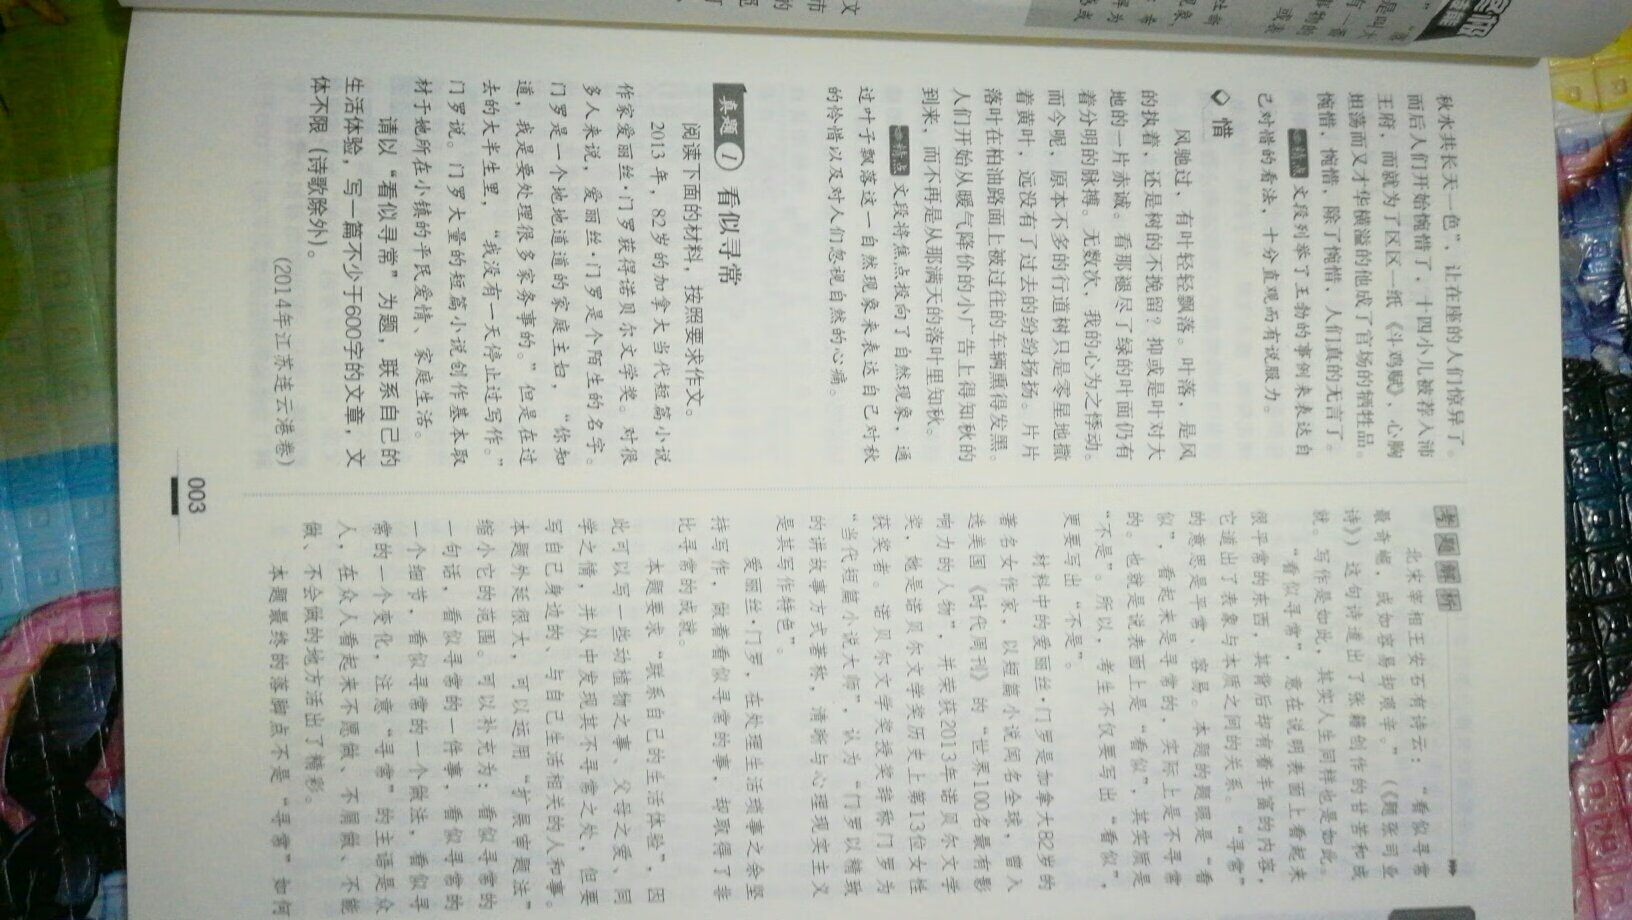 秋水共长天一色”，让在座的人们惊异了。
而后人们开始惋惜了，十四小儿被荐入沛
王府，而就为了区区一纸《斗鸡赋》，心胸
坦荡而又才华横溢的他成了官场的牺牲品。
惋惜，惋惜，除了惋惜，人们真的无言了。
精点 文段列举了王勃的事例来表达自
己对惜的看法，十分直观而有说服力。
◇ 惜
风驰过，有叶轻轻飘落。叶落，是风
的执着，还是树的不挽留？抑或是叶对大
地的一片赤诚。看那褪尽了绿的叶面仍有
着分明的脉搏。无数次，我的心为之悸动。
而今呢，原本不多的行道树只是零星地撒
着黄叶，远没有了过去的纷纷扬扬。片片
落叶在柏油路面上被过往的车辆熏得发黑。
人们开始从暖气降价的小广告上得知秋的
到来，而不再是从那满天的落叶里知秋。
精点 文段将焦点投向了自然现象，通
过叶子飘落这一自然现象来表达自己对秋
的怜惜以及对人们忽视自然的心痛。
真题 1 看似寻常
阅读下面的材料，按照要求作文。
2013年，82岁的加拿大当代短篇小说
作家爱丽丝·门罗获得诺贝尔文学奖。对很
多人来说，爱丽丝·门罗是个陌生的名字。
门罗是一个地地道道的家庭主妇，“你知
道，我是要处理很多家务事的。”但是在过
去的大半生里，“我没有一天停止过写作。”
门罗说。门罗大量的短篇小说创作基本取
材于她所在小镇的平民爱情、家庭生活。
请以“看似寻常”为题，联系自己的
生活体验，写一篇不少于600字的文章，文
体不限（诗歌除外）。
（2014年江苏连云港卷）
考题解析
北宋宰相王安石有诗云：“看似寻常
最奇崛，成如容易却艰辛。”（《题张司业
诗》）这句诗道出了张籍创作的甘苦和成
就。写作是如此，其实人生同样也是如此。
“看似寻常”，意在说明表面上看起来
很平常的东西，其背后却有着丰富的内容，
它道出了表象与本质之间的关系。“寻常”
的意思是平常、容易。本题的题眼是“看
似”，看起来是寻常的，实际上是不寻常
的。也就是说表面上是“看似”，其实质是
“不是”。所以，考生不仅要写出“看似”，
更要写出“不是”。
材料中的爱丽丝·门罗是加拿大82岁的
著名女作家，以短篇小说闻名全球，曾入
选美国《时代周刊》的“世界100名最有影
响力的人物”，并荣获2013年诺贝尔文学
奖，她是诺贝尔文学奖历史上第13位女性
获奖者。诺贝尔文学奖授奖辞称门罗为
“当代短篇小说大师”，认为“门罗以精致
的讲故事方式著称，清晰与心理现实主义
是其写作特色”。
爱丽丝·门罗，在处理生活琐事之余坚
持写作，做着看似寻常的事，却取得了非
比寻常的成就。
本题要求“联系自己的生活体验”，因
此可以写一些动植物之事、父母之爱、同
学之情，并从中发现其不寻常之处，但要
写自己身边的、与自己生活相关的人和事。
本题外延很大，可以运用“扩展审题法”
缩小它的范围。可以补充为：看似寻常的
一句话，看似寻常的一件事，看似寻常的
一个细节，看似寻常的一个做法，看似寻
常的一个变化，注意“寻常”的主语是众
人，在众人看起来不愿做、不屑做、不能
做、不会做的地方活出了精彩。
本题最终的落脚点不是“寻常”如何
003